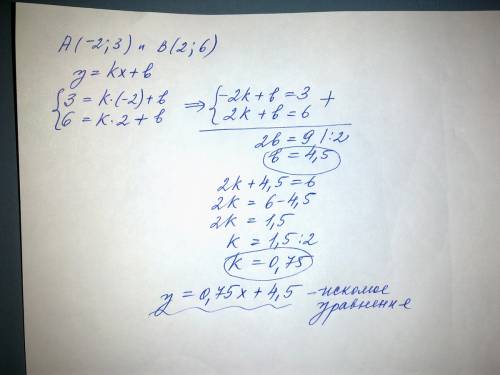 A(-2;3) и B(2;6)
y = kx+b
{3 = k·(-2)+b ⇒ {-2k+b=3 +
{6 = k·2+b {2k+b=6
2b = 9 |:2
b = 4,5
2k+4,5=6
2k = 6-4,5
2k = 1,5
k = 1,5:2
k = 0,75
y = 0,75x+4,5 - искомое
уравнение